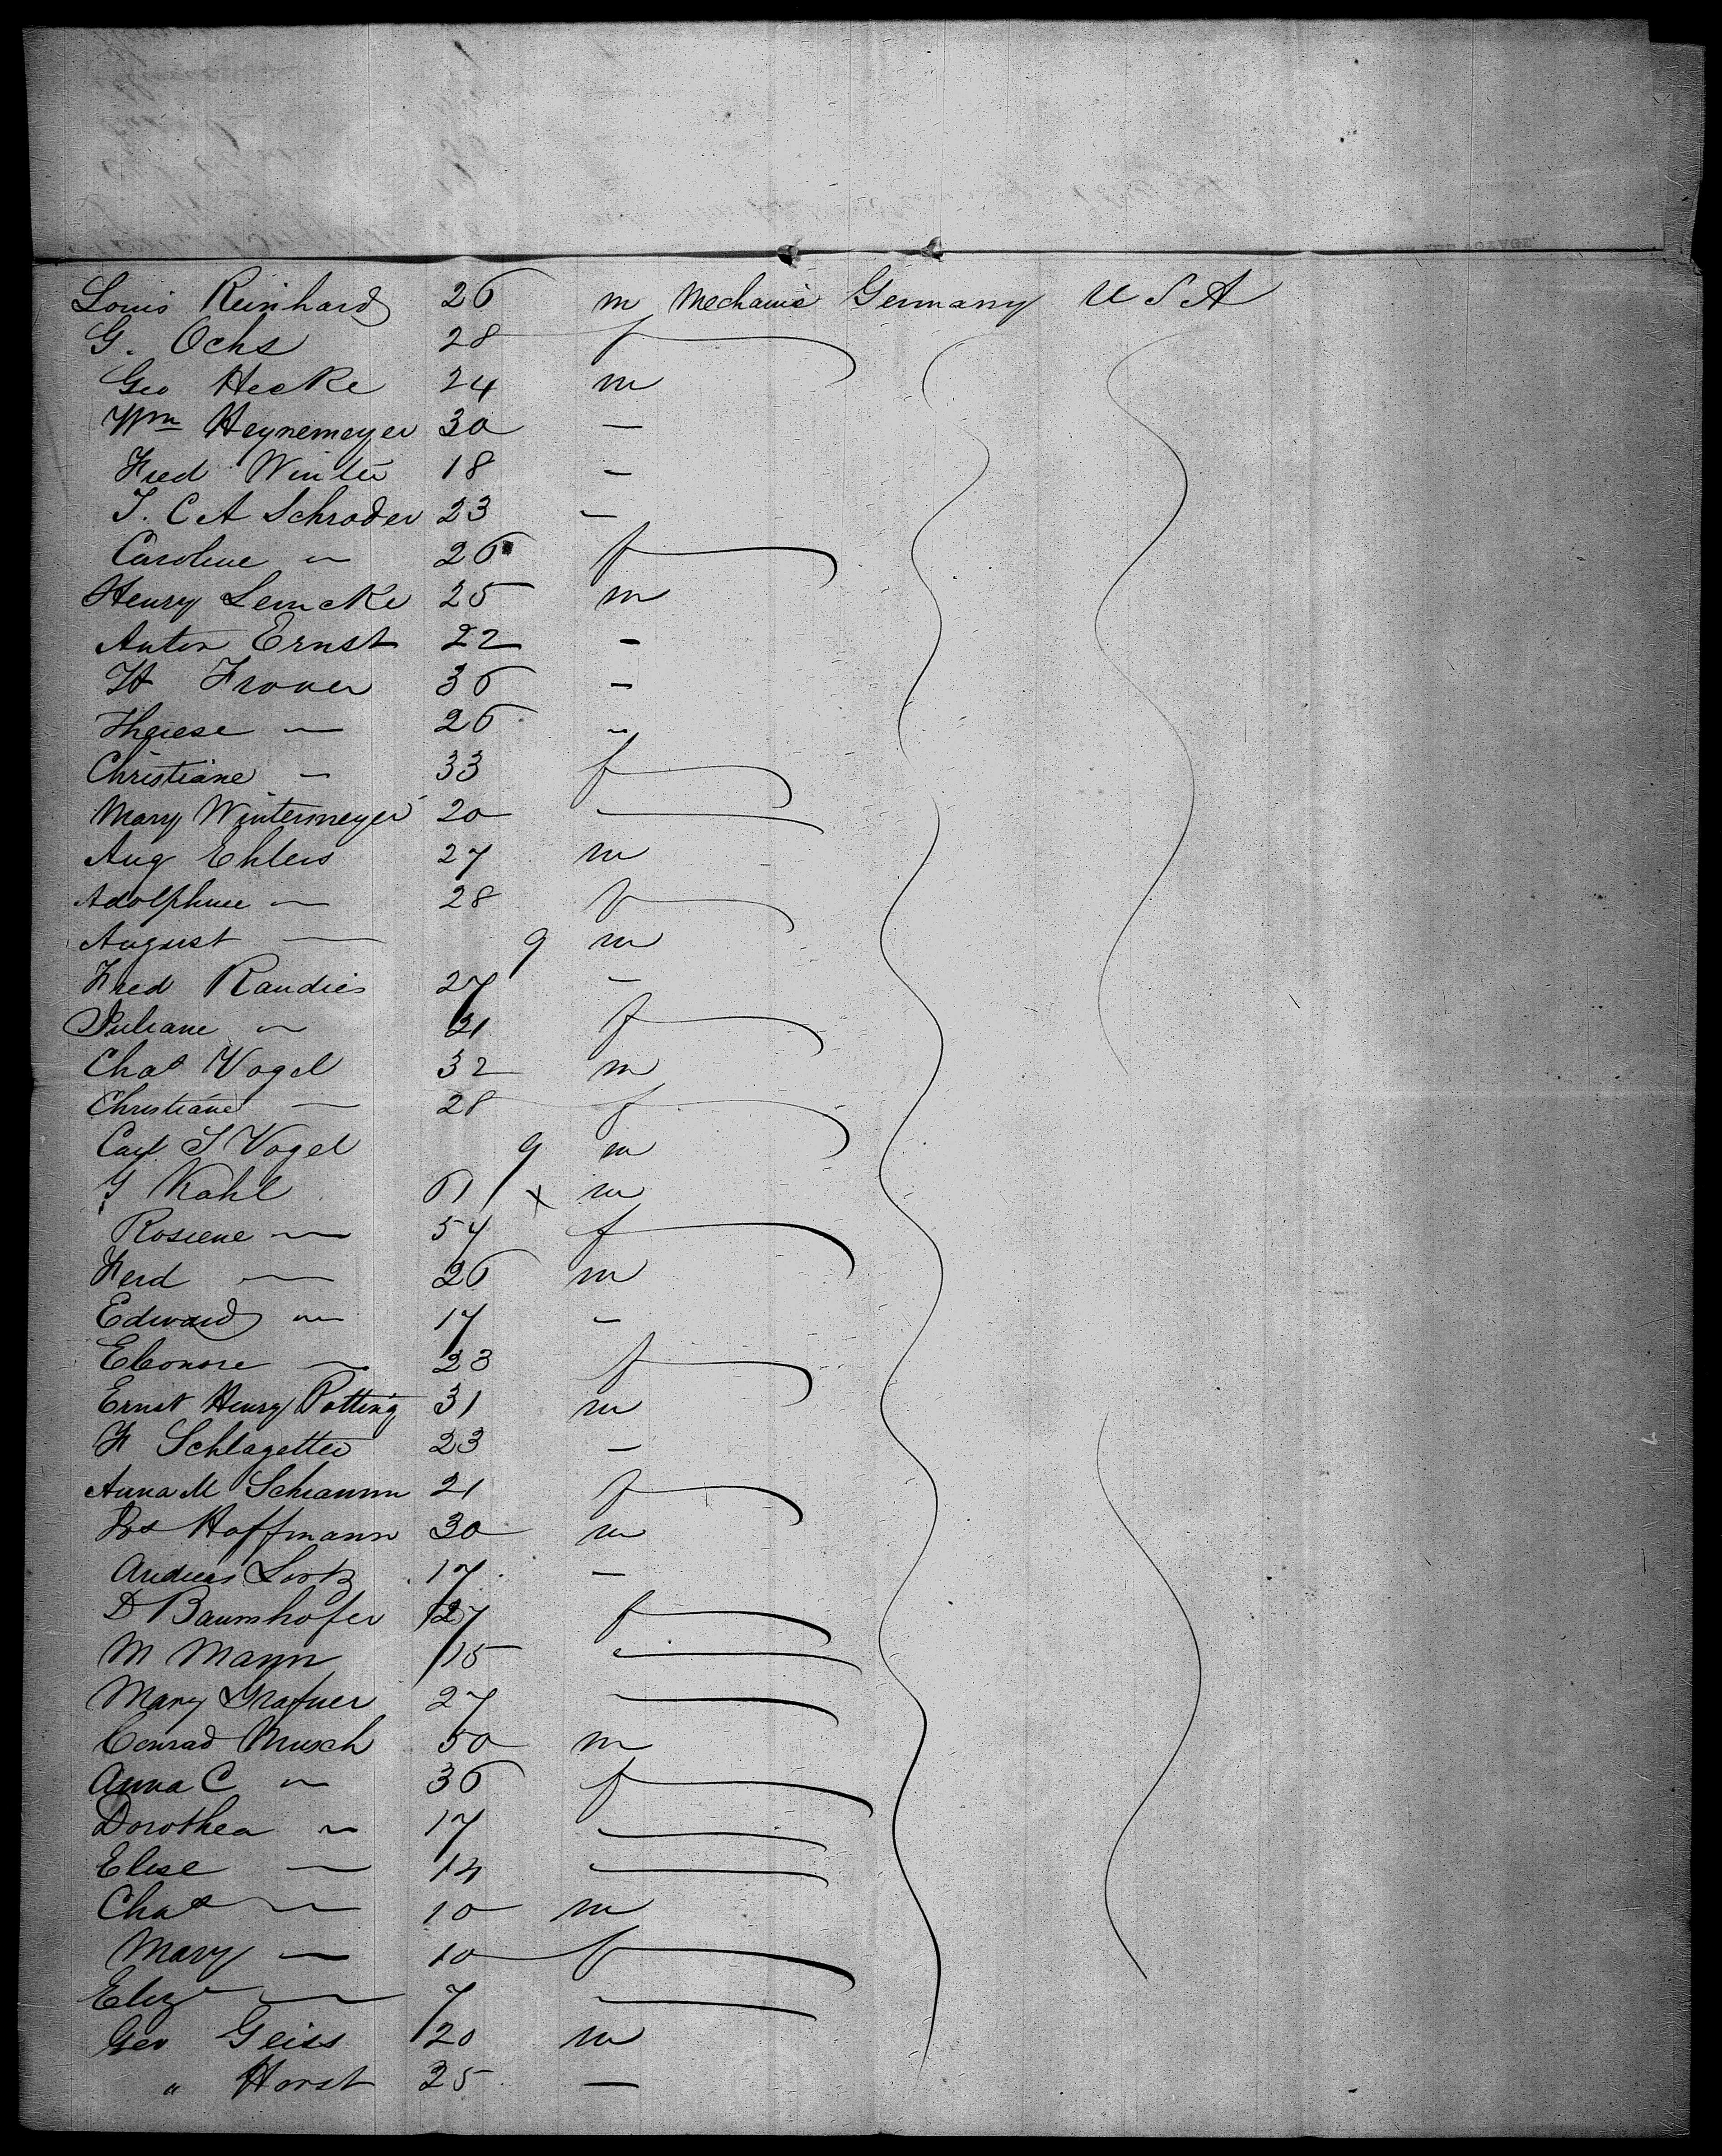 VOYAGE
Louis Reinhard 26 m Mechanic Germany U S A
G. Ochs 28 f
Geo Hecke 24 m
Wm Heynemeyer 30 —
Fred Winter 18 —
J. C A Schroder 23 —
Caroline " 26 f
Henry Lemcke 25 m
Anton Ernst 22 -
H Froner 36 -
Therese — 26 -
Christiane — 33 f
Mary Wintermeyer 20 —
Aug Ehlers 27 m
Adolphine — 28 f
August — 9 m
Fred Randies 27 —
Juliane — 21 f
Chas Vogel 32 m
Christiane — 28 f
Carl J Vogel 9 m
J Kahl 61 x m
Rosiene — 54 f
Ferd — 26 m
Edward — 17 —
Eleonore — 23 f
Ernst Henry Potting 31 m
F Schlagetter 23 —
Anna M Schramm 21 f
Jos Hoffmann 30 m
Andreas Lootz 17 —
D Baumhofer 27 f
M Mann 15 —
Mary Grafner 27 —
Conrad Musch 50 m
Anna C — 36 f
Dorothea — 17 —
Elise — 14 —
Chas — 10 m
Mary — 10 f
Eliza — 7 —
Geo Geiss 20 m
" Horst 25 —